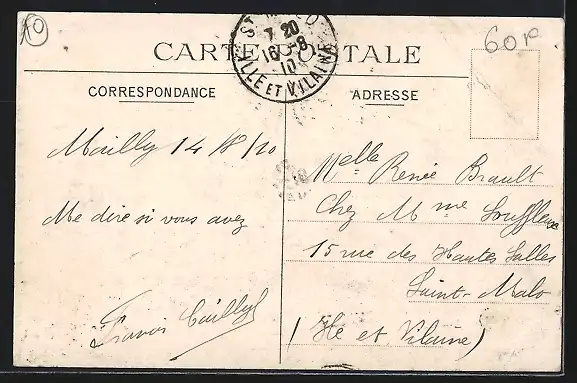 10
60 F
CARTE POSTALE
7 20
16-8
10
ILLE ET VILAINE
CORRESPONDANCE
ADRESSE
Mailly 14/8/10
Me dire si vous avez
Francis Cailly
Melle Renée Brault
Chez Mme Souffleux
15 rue des Hautes Salles
Saint-Malo
(Ile et Vilaine)